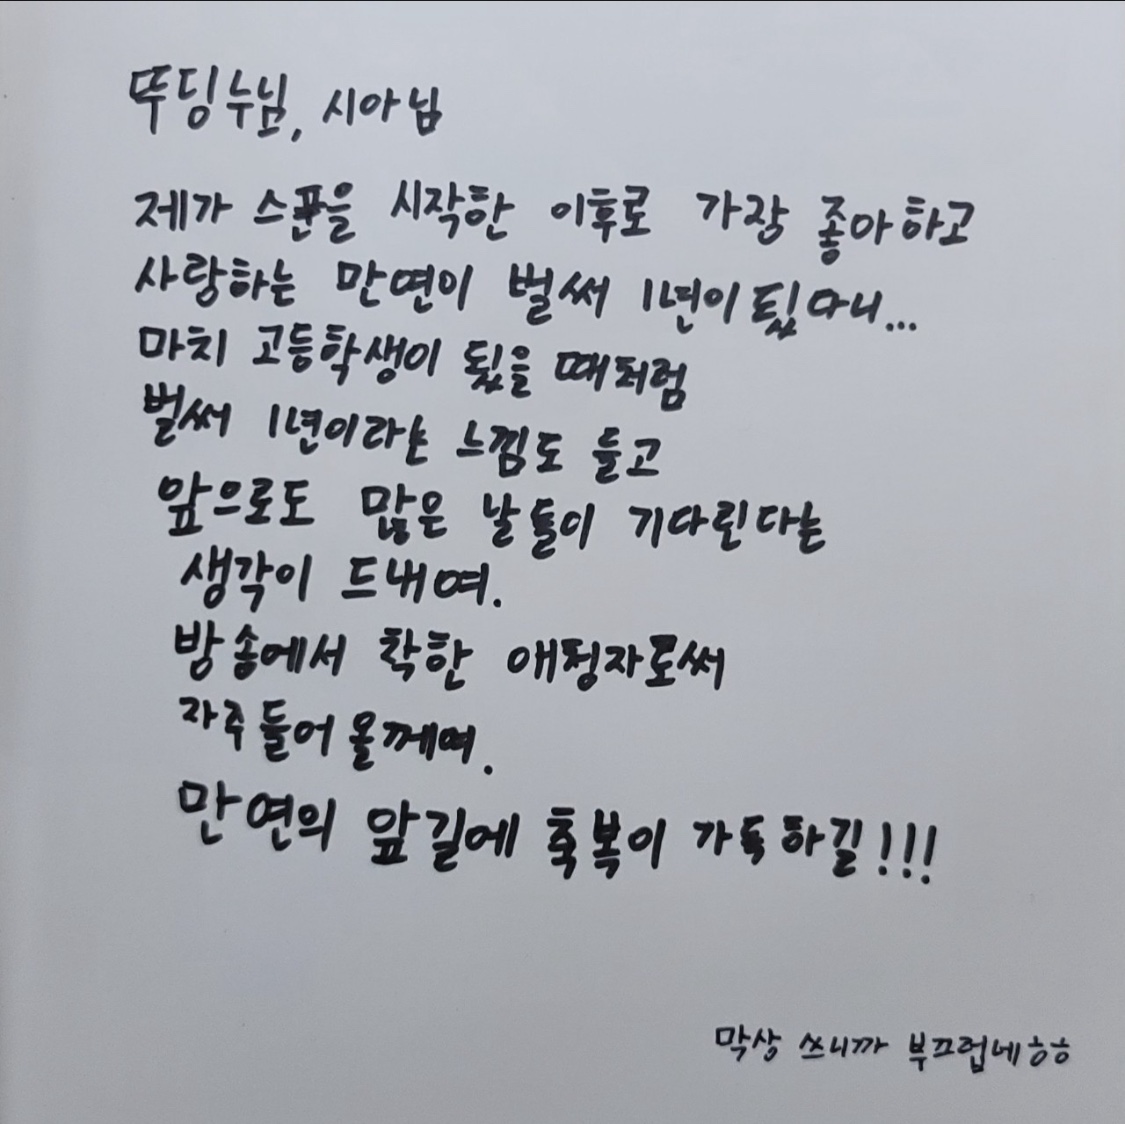 뚜딩누님, 시아님
제가 스푼을 시작한 이후로 가장 좋아하고
사랑하는 만연이 벌써 1년이 됬다니...
마치 고등학생이 됬을 때처럼
벌써 1년이라는 느낌도 들고
앞으로도 많은 날들이 기다린다는
생각이 드내여.
방송에서 착한 애청자로써
자주 들어 올께여.
만연의 앞길에 축복이 가득하길!!!
막상 쓰니까 부끄럽네ㅎㅎ